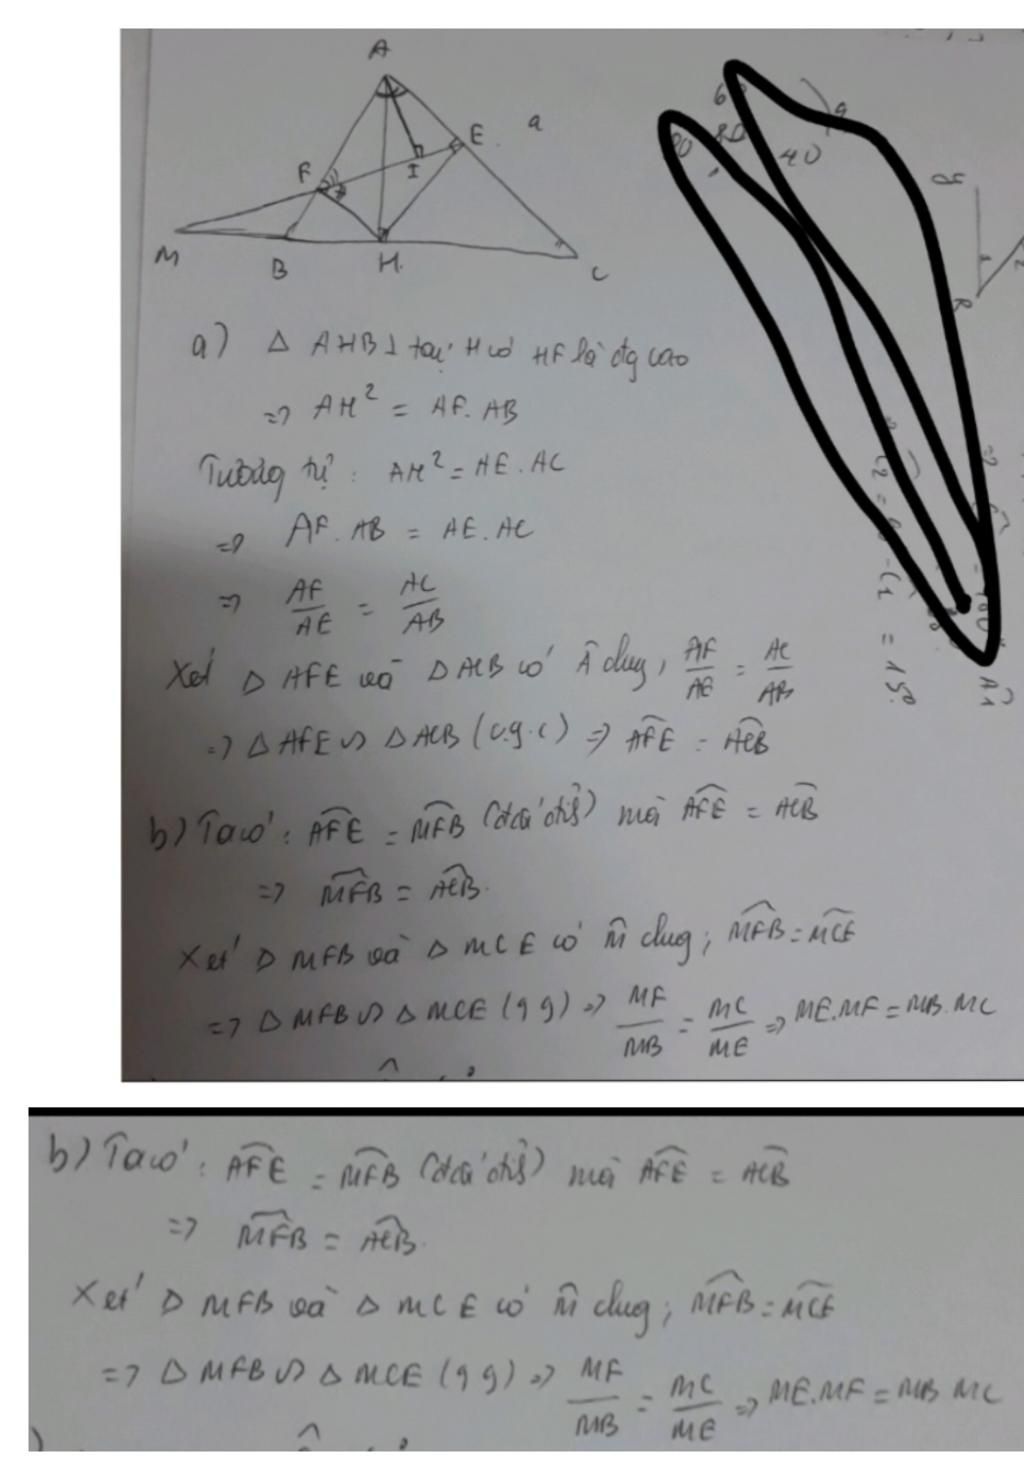 A
E
a
F
I
M
B
H.
C
a) Δ AHB ⊥ tại H có HF là đg cao
=> AH² = AF. AB
Tương tự : AH² = AE . AC
=> AF. AB = AE. AC
=> AF/AE = AC/AB
Xét Δ AFE và Δ ACB có Â chug, AF/AE = AC/AB
=> Δ AFE ∽ Δ ACB (c.g.c) => AFE^ = ACB^
b) Ta có : AFE^ = MFB^ (đđ) mà AFE^ = ACB^
=> MFB^ = ACB^.
Xét Δ MFB và Δ MCE có M^ chug ; MFB^ = MCE^
=> Δ MFB ∽ Δ MCE (g g) => MF/MB = MC/ME => ME.MF = MB. MC
80
40
y
R
= 15°
b) Ta có : AFE^ = MFB^ mà AFE^ = ACB^
=> MFB^ = ACB^.
Xét Δ MFB và Δ MCE có M^ chug ; MFB^ = MCE^
=> Δ MFB ∽ Δ MCE (g g) => MF/MB = MC/ME => ME.MF = MB MC